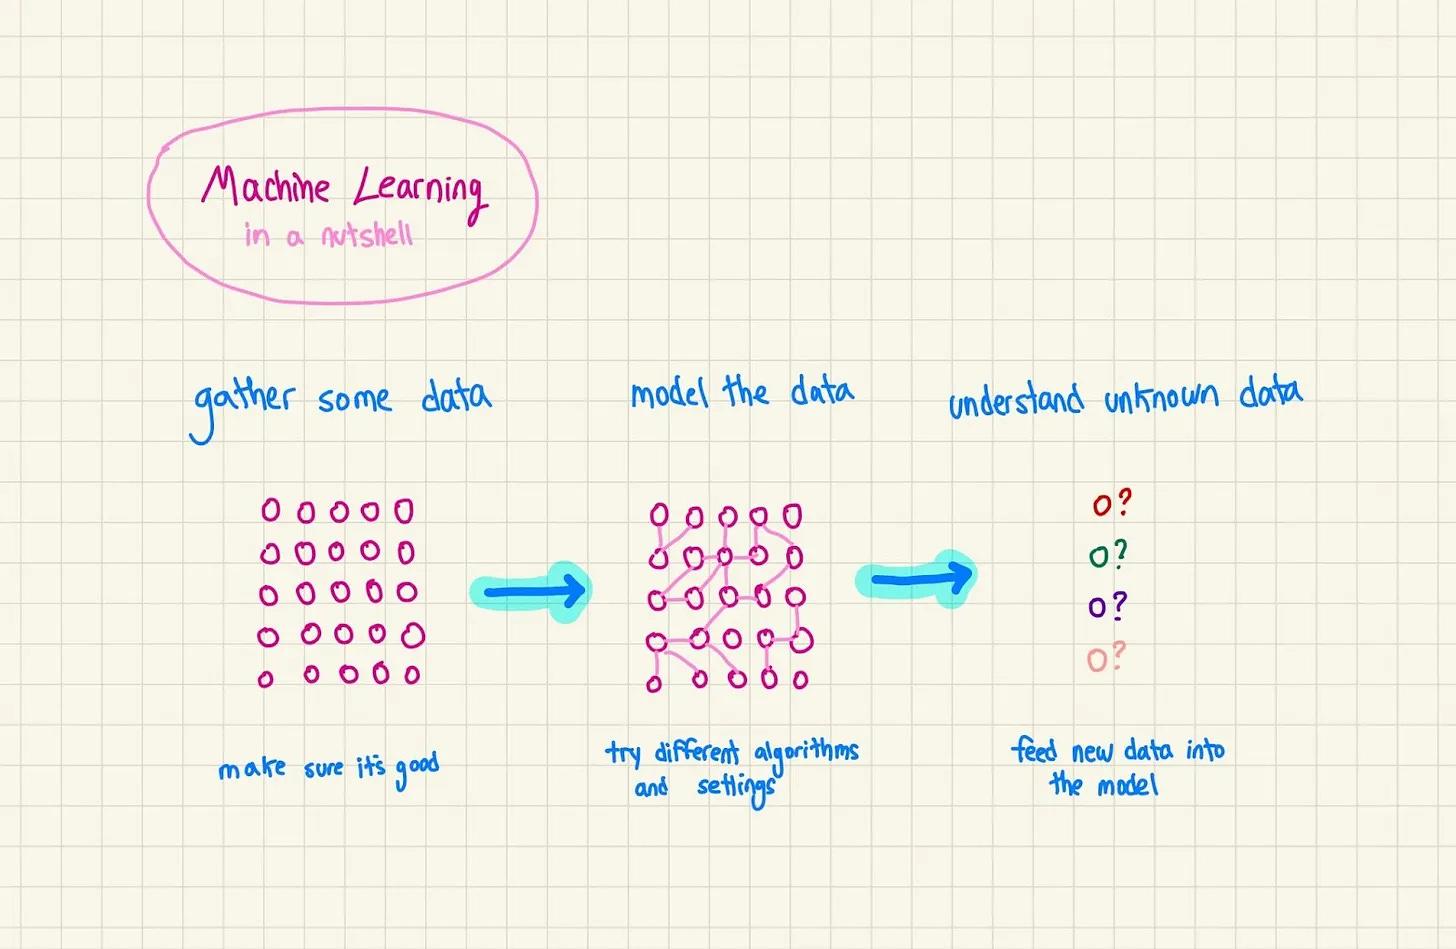 Machine Learning
in a nutshell
gather some data
model the data
understand unknown data
o?
o?
o?
o?
make sure it's good
try different algorithms
and settings
feed new data into
the model